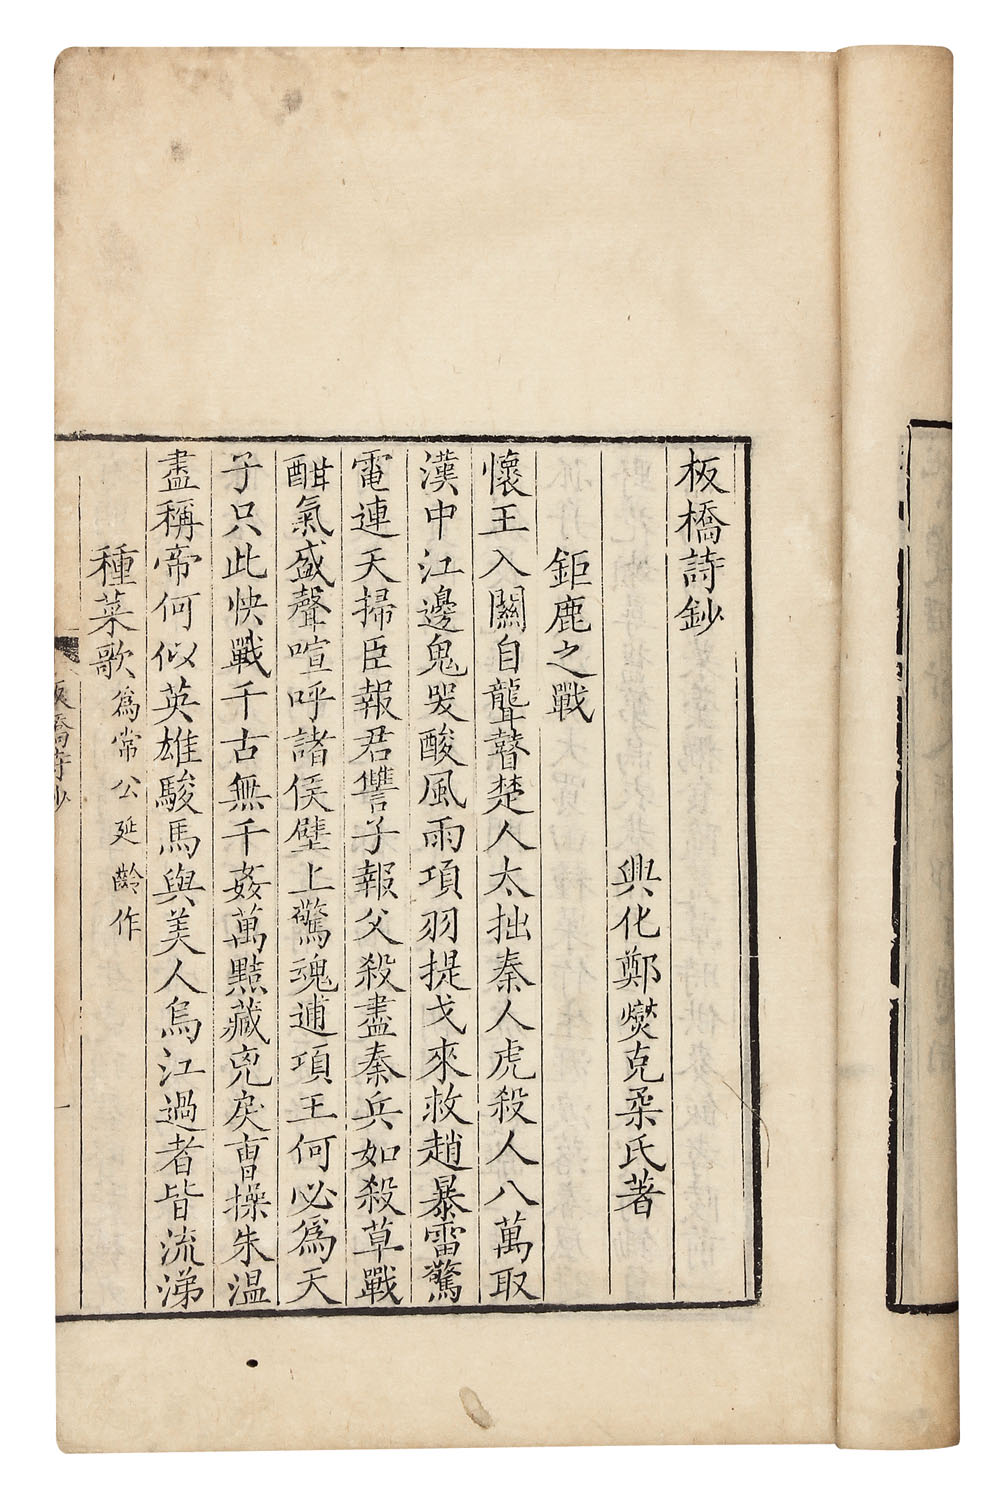 板橋詩鈔
興化鄭燮克柔氏著
鉅鹿之戰
懷王入關自聾瞽楚人太拙秦人虎殺人八萬取
漢中江邊鬼哭酸風雨項羽提戈來救趙暴雷驚
電連天掃臣報君讐子報父殺盡秦兵如殺草戰
酣氣盛聲喧呼諸侯壁上驚魂逋項王何必為天
子只此快戰千古無千姦萬黠藏兇戾曹操朱温
盡稱帝何似英雄駿馬與美人烏江過者皆流涕
種菜歌為常公延齡作
板橋詩鈔
一